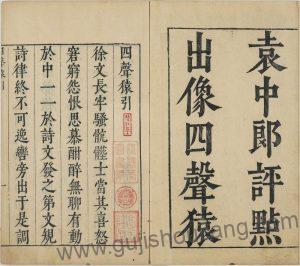 袁中郎評點
出像四聲猿
四聲猿引
徐文長牢騷骯髒士當其喜怒
窘窮怨恨思慕酣醉無聊有動
於中一一於詩文發之第文規
詩律終不可逸轡旁出于是調
www.gujishoucang.com